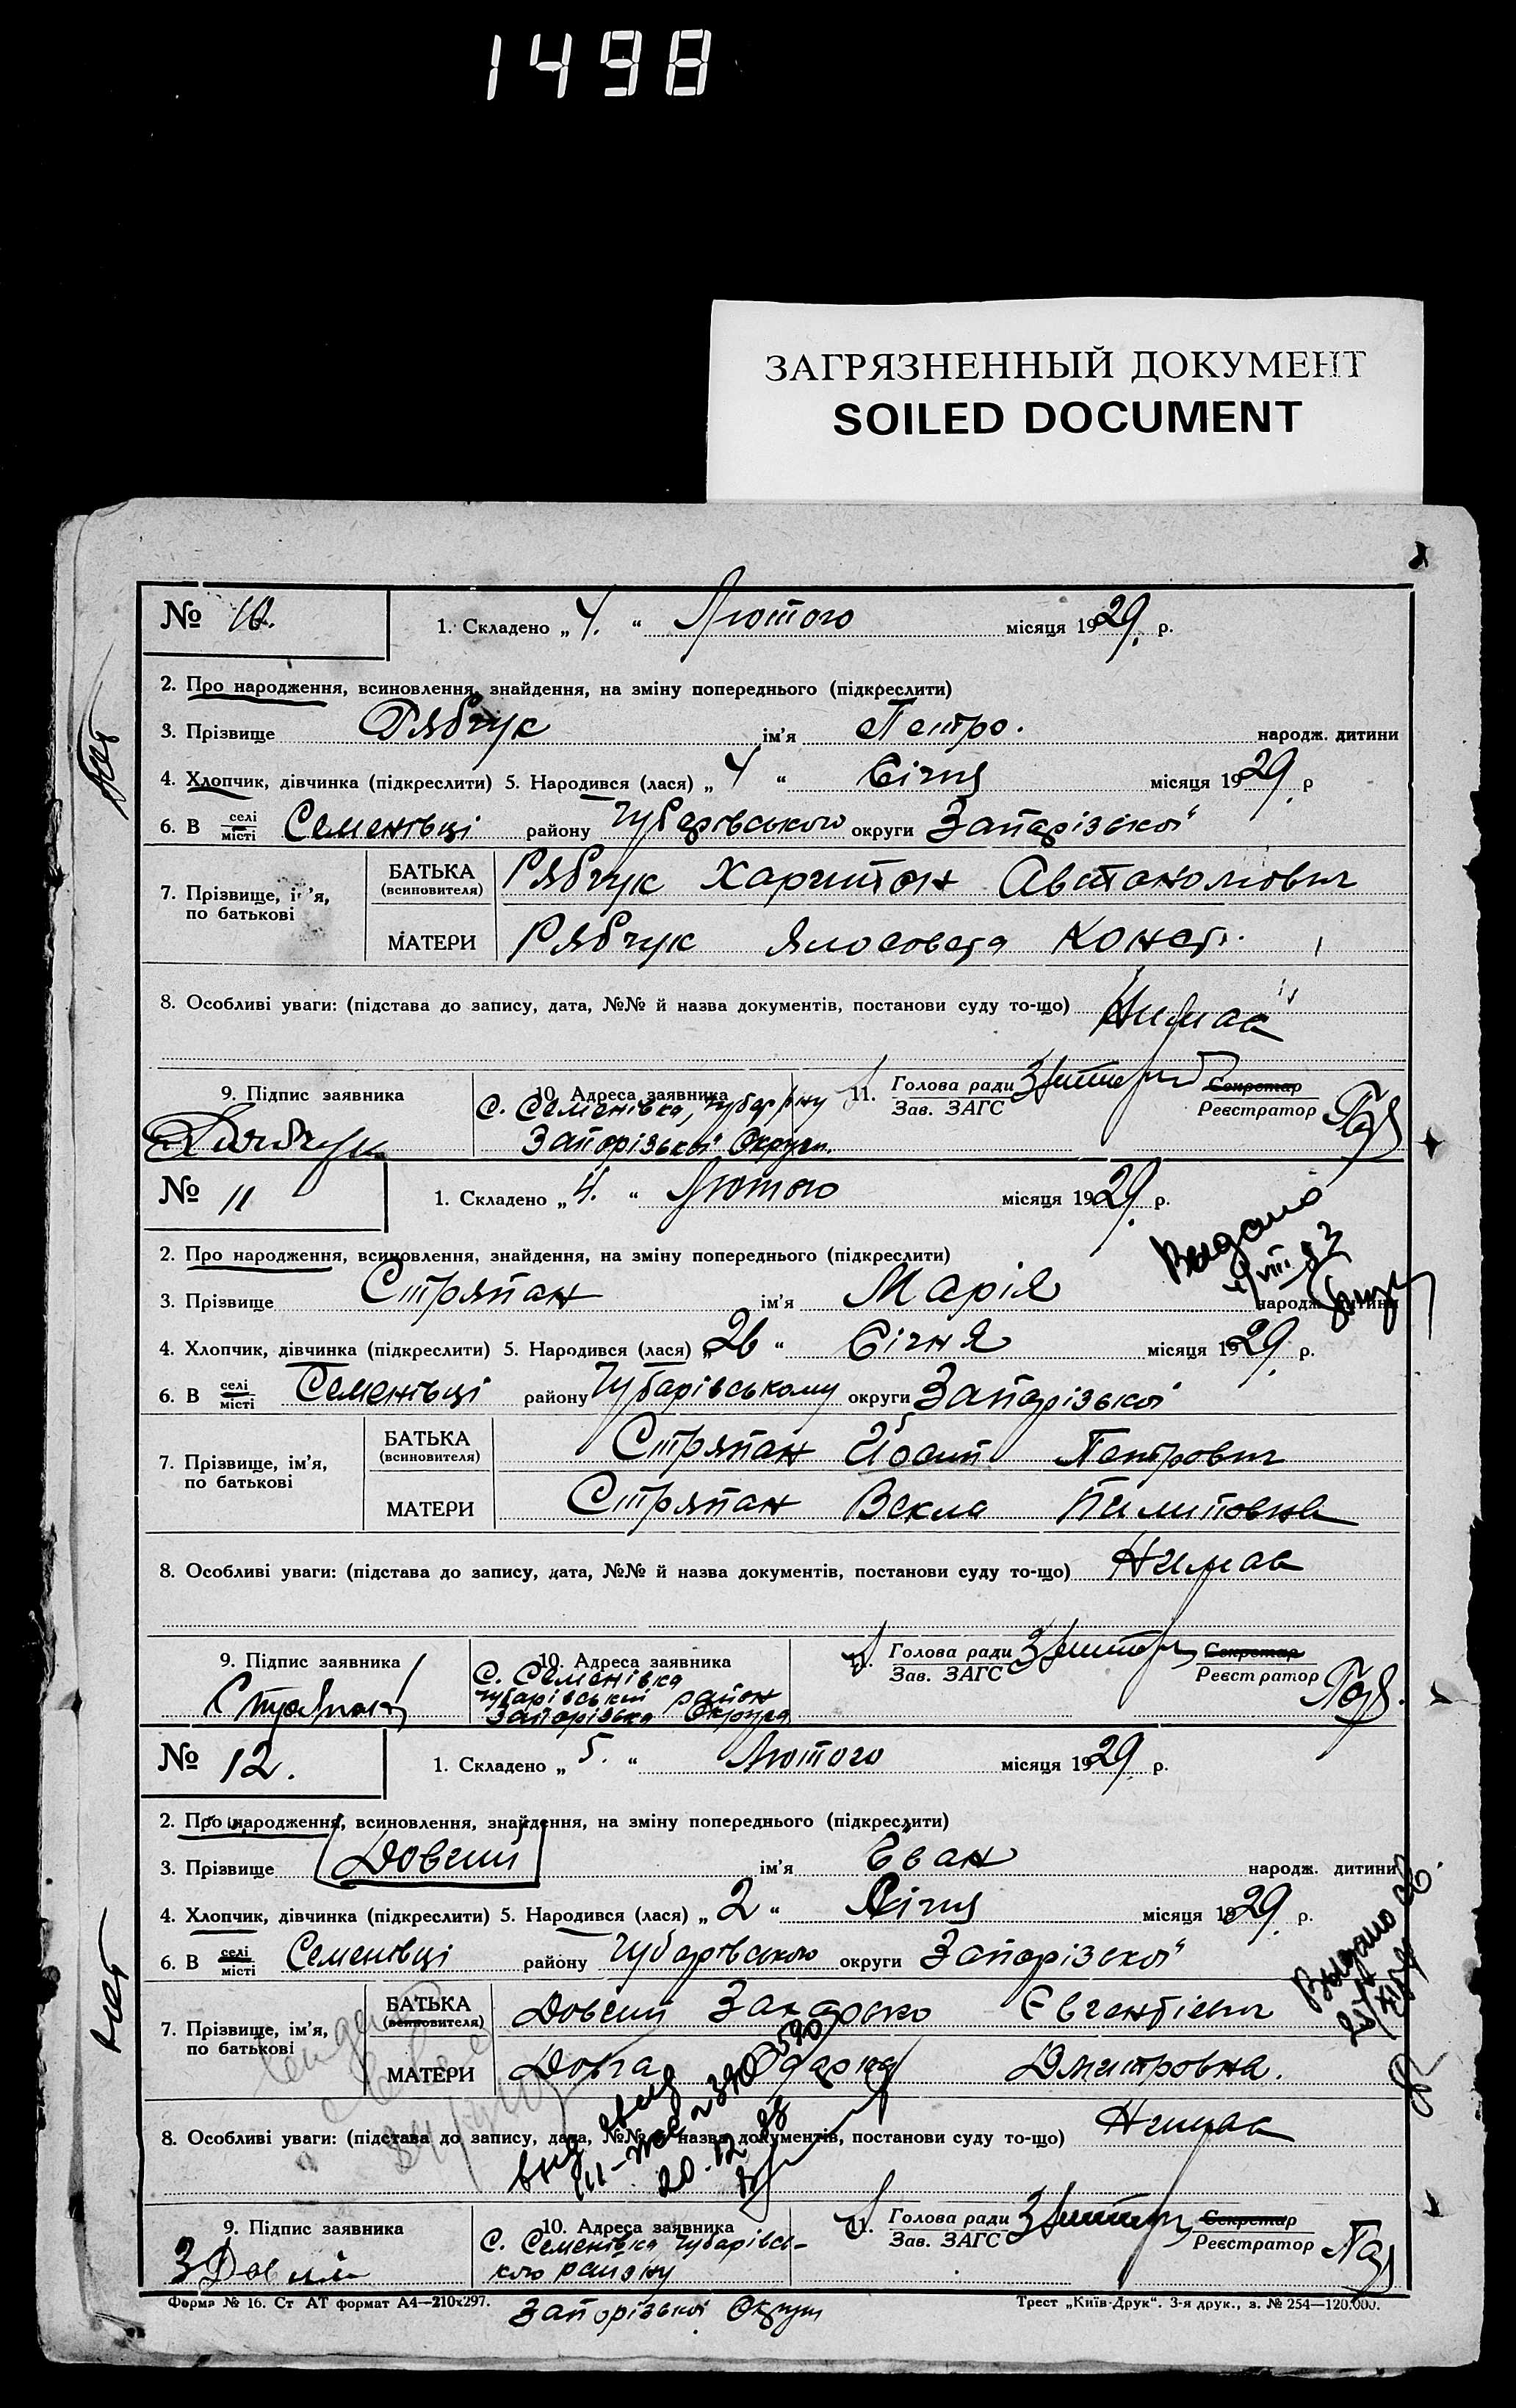 1498
ЗАГРЯЗНЕННЫЙ ДОКУМЕНТ
SOILED DOCUMENT
№ 10. 1. Складено „ 4. “ Лютого місяця 1929. р.
2. Про народження, всиновлення, знайдення, на зміну попереднього (підкреслити)
3. Прізвище Рябчук ім'я Петро. народж. дитини
4. Хлопчик, дівчинка (підкреслити) 5. Народився (лася) „ 4 “ Січня місяця 1929. р
6. В селі місті Семенівці району Чубарівського округи Запорізької
7. Прізвище, ім'я, по батькові
БАТЬКА (всиновителя) Рябчук Харитон Автономович
МАТЕРИ Рябчук Конст.
8. Особливі уваги: (підстава до запису, дата, №№ й назва документів, постанови суду то-що) Нимає
9. Підпис заявника
10. Адреса заявника
С. Семенівка, Чубар р/ну
Запорізької Округи.
11. Голова ради Зав. ЗАГС Секретар Реєстратор
№ 11 1. Складено „ 4. “ Лютого місяця 1929. р.
2. Про народження, всиновлення, знайдення, на зміну попереднього (підкреслити)
Выдано
3. Прізвище Стряпан ім'я Марія народж. дитини
4. Хлопчик, дівчинка (підкреслити) 5. Народився (лася) „ 26 “ Січня місяця 1929. р.
6. В селі місті Семенівці району Чубарівському округи Запорізької
7. Прізвище, ім'я, по батькові
БАТЬКА (всиновителя) Стряпан Йосип Петрович
МАТЕРИ Стряпан Векла Пилиповна
8. Особливі уваги: (підстава до запису, дата, №№ й назва документів, постанови суду то-що) Нимає
9. Підпис заявника
10. Адреса заявника
С. Семенівка
Чубарівський район
Запорізька Округа
11. Голова ради Зав. ЗАГС Секретар Реєстратор
№ 12. 1. Складено „ 5. “ Лютого місяця 1929. р.
2. Про народження, всиновлення, знайдення, на зміну попереднього (підкреслити)
3. Прізвище Довгий ім'я Єван народж. дитини
4. Хлопчик, дівчинка (підкреслити) 5. Народився (лася) „ 2 “ Січня місяця 1929. р.
6. В селі місті Семенівці району Чубарівського округи Запорізької
Выдано
7. Прізвище, ім'я, по батькові
БАТЬКА (всиновителя) Довгий Захарько
МАТЕРИ Довга Одарка Дмитровна.
8. Особливі уваги: (підстава до запису, дата, №№ й назва документів, постанови суду то-що) Нимає
20.12
9. Підпис заявника
10. Адреса заявника
С. Семенівка Чубарівсь-
кого району
Запорізької Округи
11. Голова ради Зав. ЗАГС Секретар Реєстратор
Форма № 16. Ст АТ формат А4—210х297.
Трест „Київ-Друк“. 3-я друк., з. № 254—120.000.